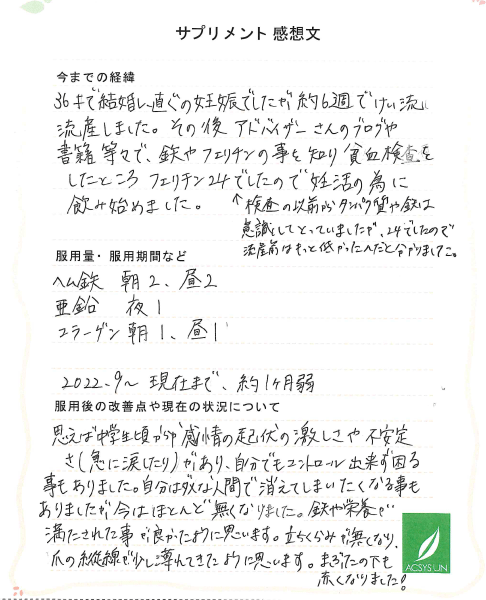 サプリメント 感想文
今までの経緯
36才で結婚し、直ぐの妊娠でしたが 約6週でけい流
流産しました。その後 アドバイザーさんのブログや
書籍 等々で、鉄やフェリチンの事を知り 貧血検査を
したところ フェリチン24でしたので 妊活の為に
飲み始めました。
↑検査の以前からタンパク質や鉄は
意識してとっていましたが、24でしたので
流産前はもっと低かったんだと分かりました。
服用量・服用期間など
ヘム鉄 朝2、昼2
亜鉛 夜1
コラーゲン 朝1、昼1
2022.9〜 現在まで、約1ヶ月弱
服用後の改善点や現在の状況について
思えば中学生頃から 感情の起伏の激しさや 不安定
さ(急に涙したり)があり、自分でもコントロール出来ず困る
事もありました。自分はダメな人間で消えてしまいたくなる事も
ありましたが 今はほとんど無くなりました。鉄や栄養が
満たされた事が良かったように思います。立ちくらみが無くなり、
爪の縦線が少し薄れてきたように思います。まぶたの下も
赤くなりました!
ACSYS LIN